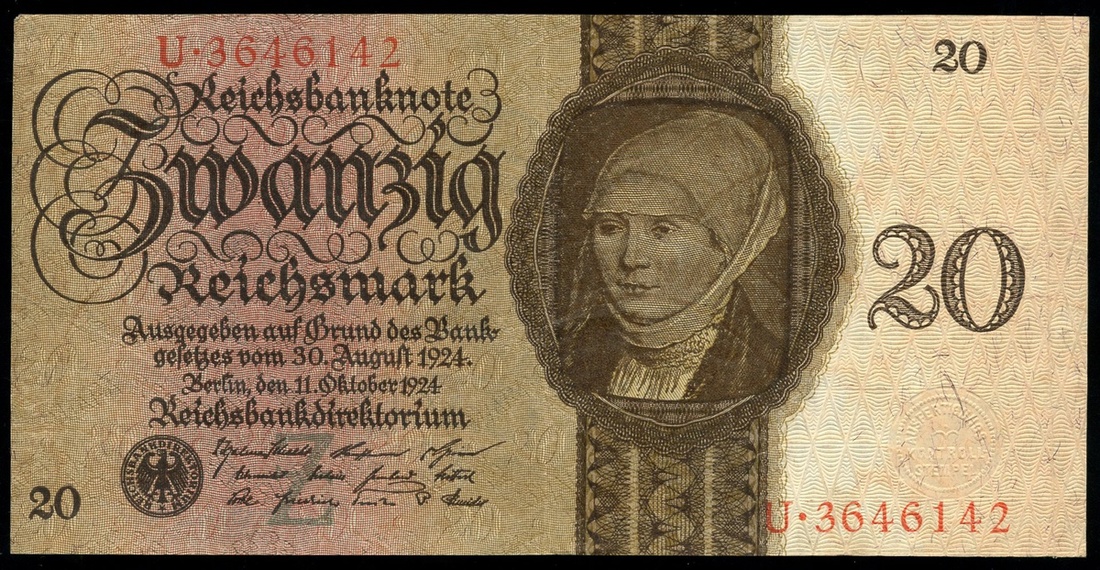 U·3646142
20
Reichsbanknote
Zwanzig
Reichsmark
20
Ausgegeben auf Grund des Bank-
gesetzes vom 30. August 1924.
Berlin, den 11. Oktober 1924
Reichsbankdirektorium
Z
20
U·3646142